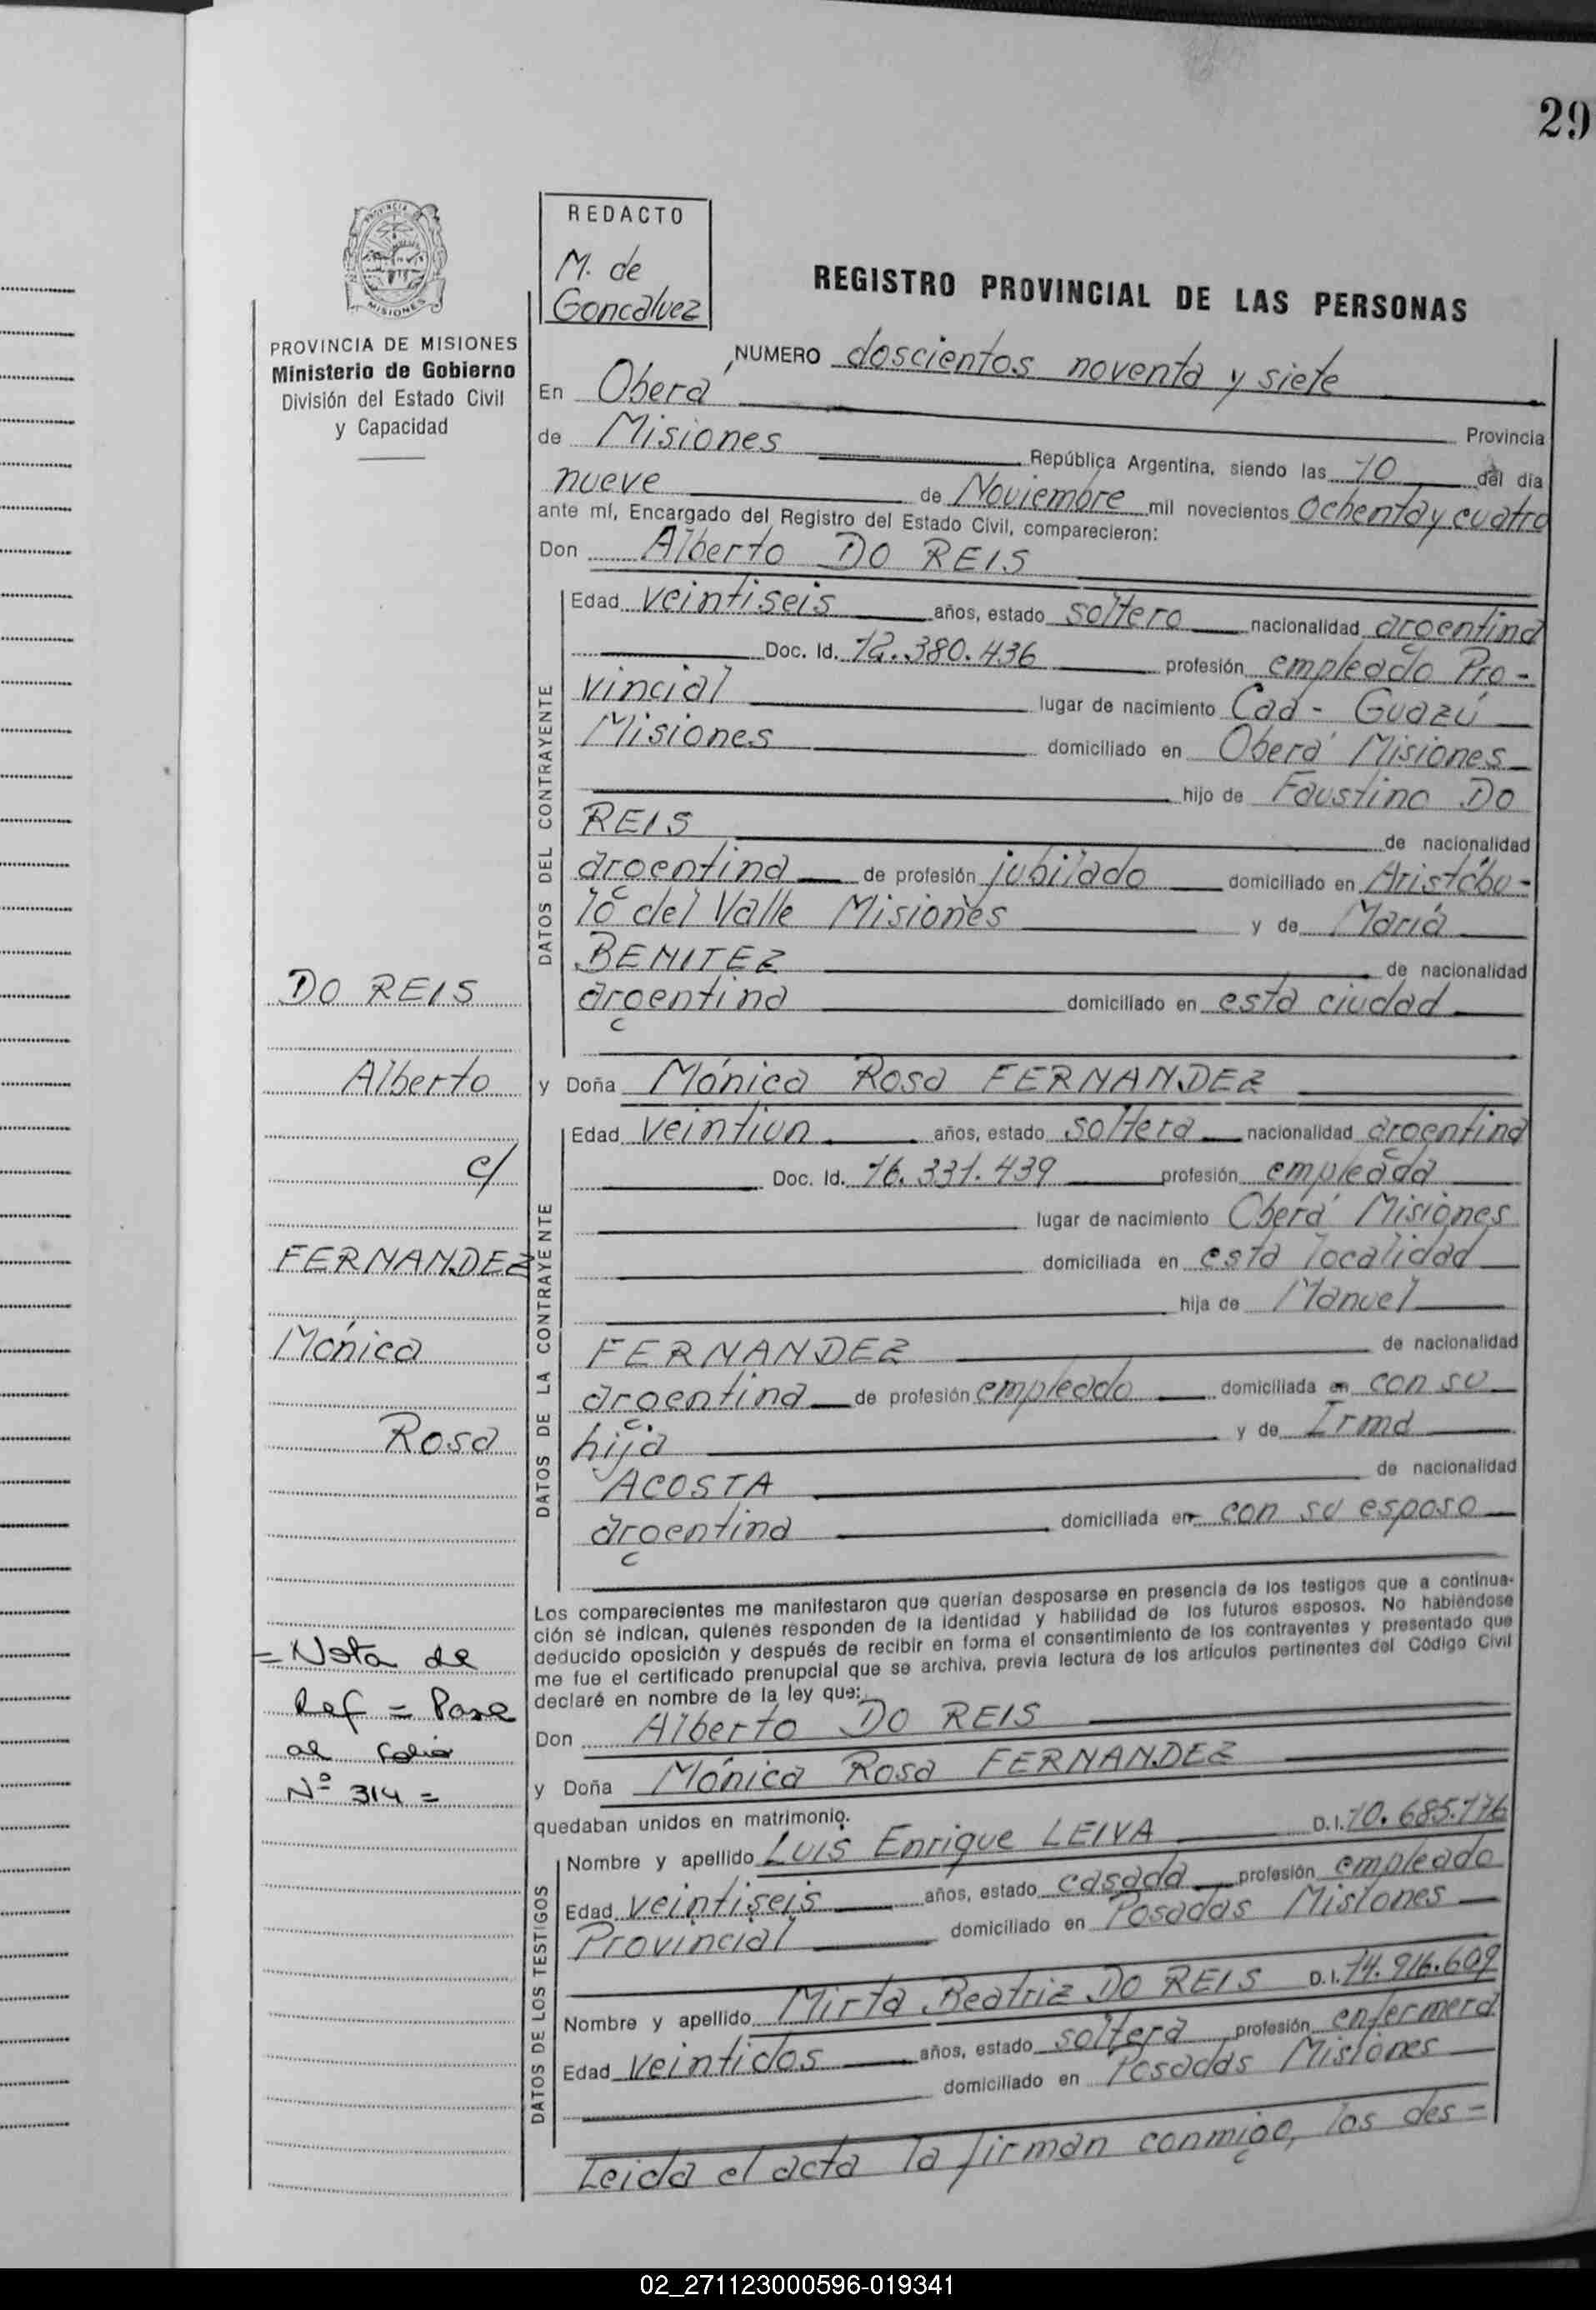 29
REDACTO
M. de
Goncalvez
PROVINCIA
MISIONES
PROVINCIA DE MISIONES
Ministerio de Gobierno
División del Estado Civil
y Capacidad
REGISTRO PROVINCIAL DE LAS PERSONAS
NUMERO doscientos noventa y siete
En Oberá
de Misiones Provincia
República Argentina, siendo las 10 del día
nueve de Noviembre mil novecientos ochenta y cuatro
ante mí, Encargado del Registro del Estado Civil, comparecieron:
Don Alberto DO REIS
DATOS DEL CONTRAYENTE
Edad veintiseis años, estado soltero nacionalidad argentina
Doc. Id. 12.380.436 profesión empleado Pro-
vincial lugar de nacimiento Caá - Guazú
Misiones domiciliado en Oberá Misiones
hijo de Faustino DO
REIS de nacionalidad
argentina de profesión jubilado domiciliado en Aristóbu-
lo del Valle Misiones y de María
BENITEZ de nacionalidad
argentina domiciliado en esta ciudad
y Doña Mónica Rosa FERNANDEZ
DATOS DE LA CONTRAYENTE
Edad veintiun años, estado soltera nacionalidad argentina
Doc. Id. 16.331.439 profesión empleada
lugar de nacimiento Oberá Misiones
domiciliada en esta localidad
hija de Manuel
FERNANDEZ de nacionalidad
argentina de profesión empleado domiciliada en con su
hija y de Irma
ACOSTA de nacionalidad
argentina domiciliada en con su esposo
Los comparecientes me manifestaron que querían desposarse en presencia de los testigos que a continua-
ción se indican, quienes responden de la identidad y habilidad de los futuros esposos. No habiéndose
deducido oposición y después de recibir en forma el consentimiento de los contrayentes y presentado que
me fue el certificado prenupcial que se archiva, previa lectura de los artículos pertinentes del Código Civil
declaré en nombre de la ley que:
Don Alberto DO REIS
y Doña Mónica Rosa FERNANDEZ
quedaban unidos en matrimonio.
DATOS DE LOS TESTIGOS
Nombre y apellido Luis Enrique LEIVA D.I. 10.685.176
Edad veintiseis años, estado casado profesión empleado
Provincial domiciliado en Posadas Misiones
Nombre y apellido Mirta Beatriz DO REIS D.I. 14.916.609
Edad veintidos años, estado soltera profesión enfermera
domiciliado en Posadas Misiones
Leida el acta la firman conmigo, los des-
DO REIS
Alberto
c/
FERNANDEZ
Mónica
Rosa
= Nota de
Ref = Pase
al folio
Nº 314 =
02_271123000596-019341